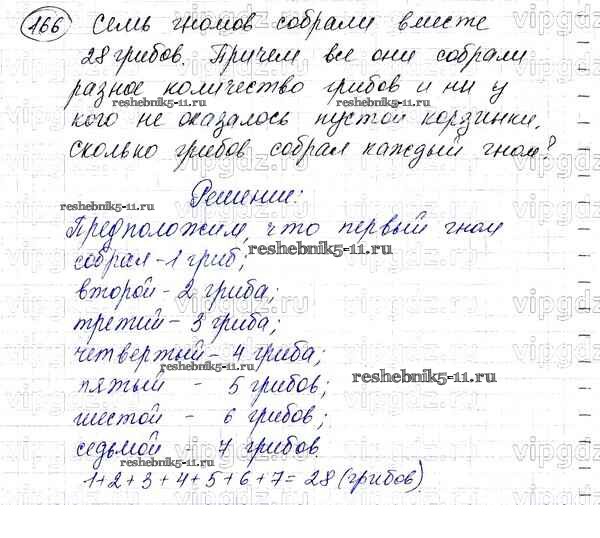 166 Семь гномов собрали вместе
28 грибов. Причем все они собрали
разное количество грибов и ни у
кого не оказалось пустой корзинки.
Сколько грибов собрал каждый гном?
Решение:
Предположим, что первый гном
собрал - 1 гриб;
второй - 2 гриба;
третий - 3 гриба;
четвертый - 4 гриба;
пятый - 5 грибов;
шестой - 6 грибов;
седьмой - 7 грибов
1+2+3+4+5+6+7=28 (грибов)
reshebnik5-11.ru
reshebnik5-11.ru
reshebnik5-11.ru
reshebnik5-11.ru
reshebnik5-11.ru
reshebnik5-11.ru
vipgdz.ru